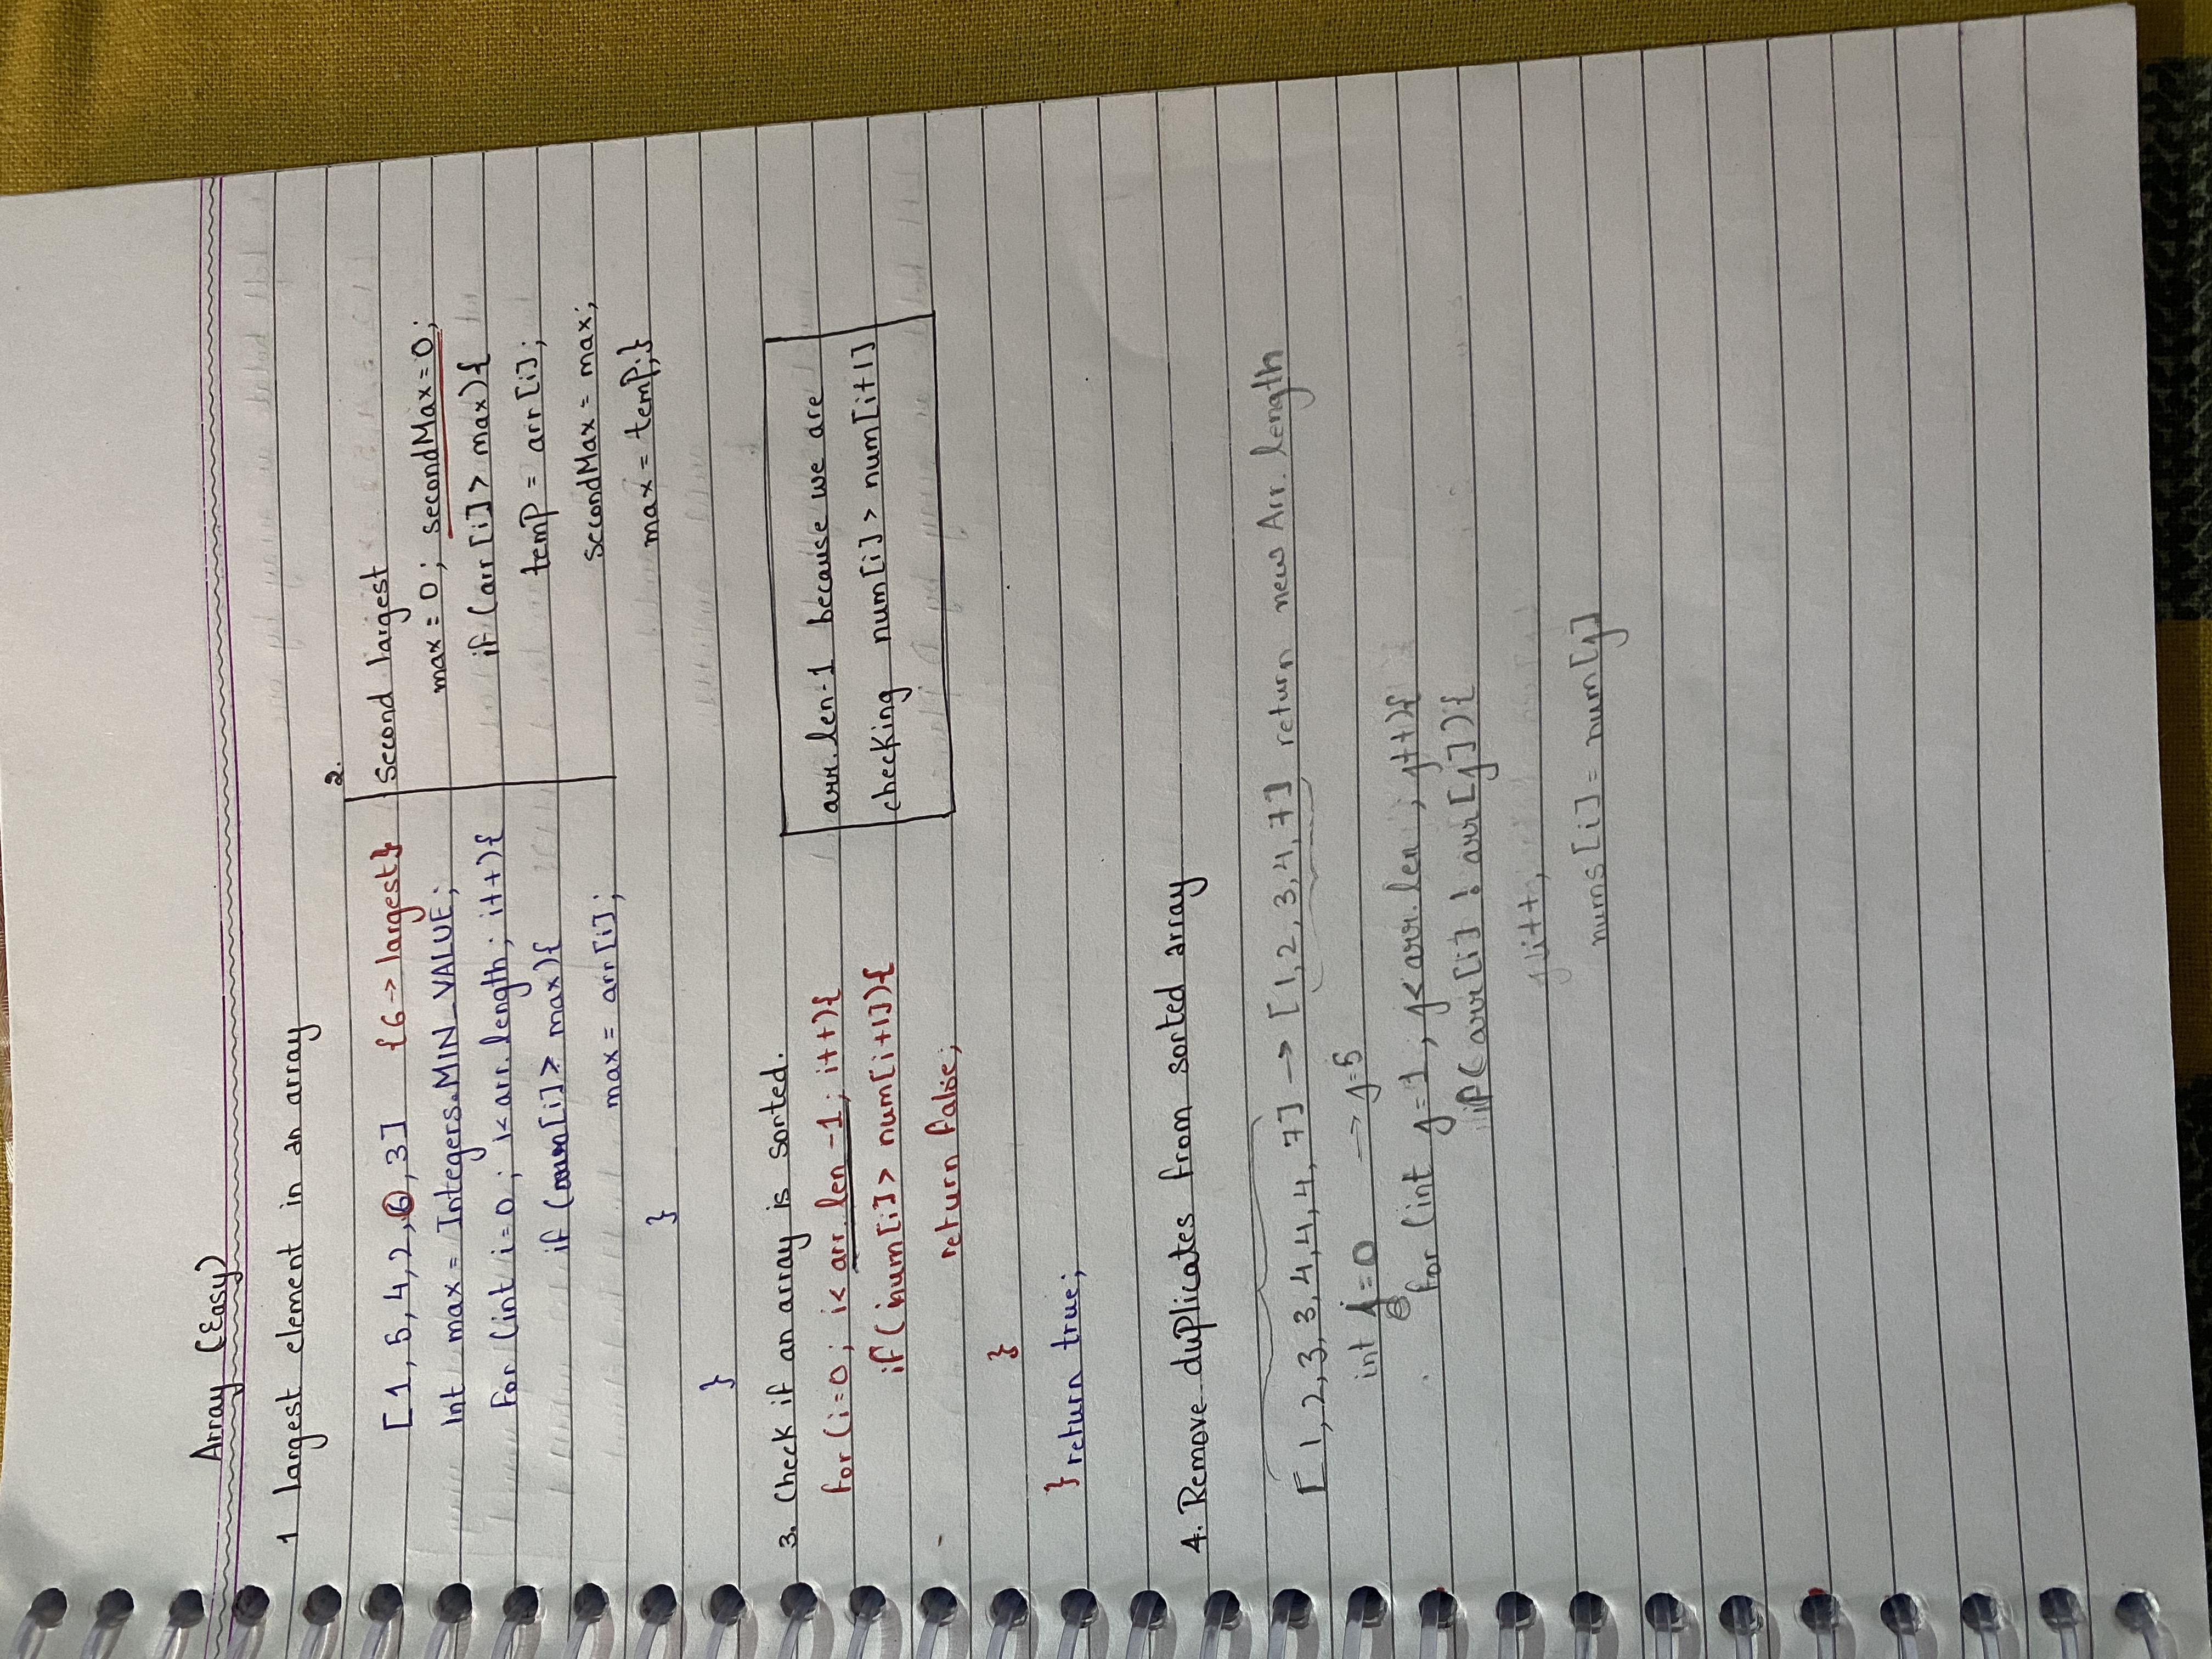 Array (Easy)
1 largest element in an array
[1, 5, 4, 2, 6, 3] {6 → largest}
Int max = Integers.MIN_VALUE;
For (int i=0; i< arr.length; i++){
if ([i] > max){
max = arr[i];
}
}
2.
Second largest
max = 0; secondMax = 0;
if (arr[i] > max){
temp = arr[i];
secondMax = max;
max = temp;}
3. Check if an array is sorted.
for (i=0; i< arr.len -1; i++){
if (num[i] > num[i+1]){
return false;
}
} return true;
arr.len-1 because we are
checking num[i] > num[i+1]
4. Remove duplicates from sorted array
[1, 2, 3, 3, 4, 4, 4, 7] → [1, 2, 3, 4, 7] return new Arr. length
int =0 → j=5
for (int j=1, j< arr.len ; j++){
if (arr[i] ! arr[j]){
i++;
nums[i] = num[j]